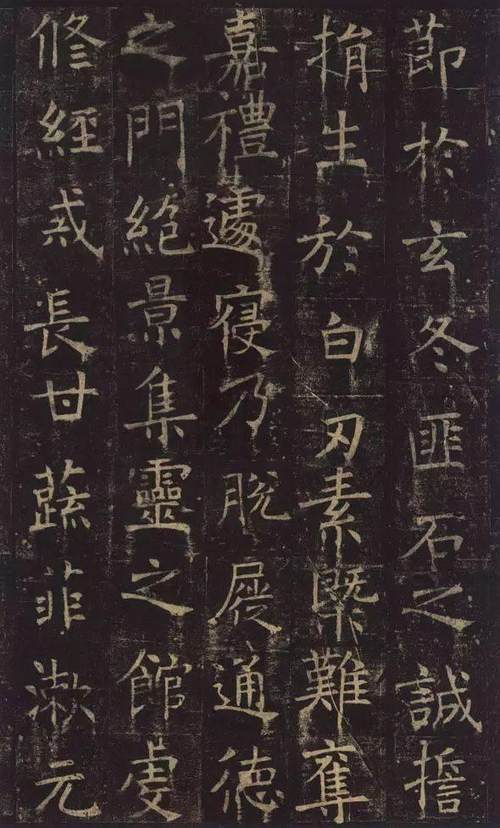 節扵玄冬匪石之誠誓
捐生於白刃素槩難奪
嘉禮遽寢乃脫屣通德
之門絶景集靈之館虔
修經戒長甘蔬菲漱元